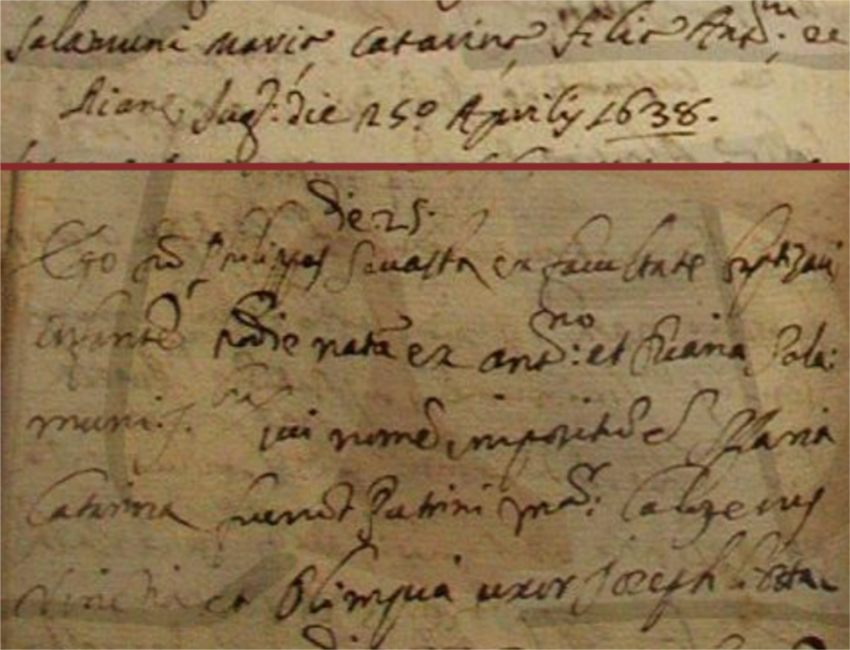 Salamuni Mariæ Catarinæ filiæ Ant.ni et
Dianæ Jug: die 25º Aprilis 1638.
Die 25.
Ego Philippus ex facultate baptizavi
infantē hodie natā ex Ant.no: et Diana Sala:
muni: cui nomē impositū est Maria
Catarina fuerūt Patrini
et Olimpia uxor Joseph